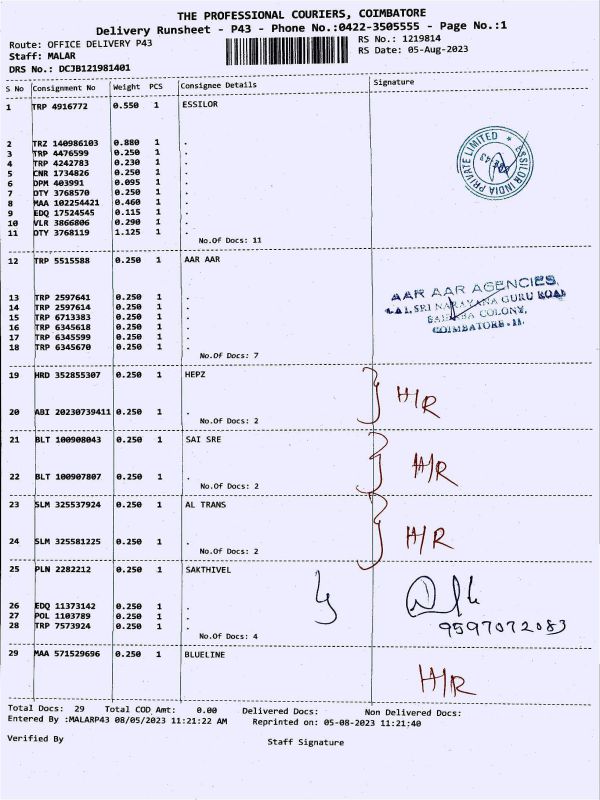 THE PROFESSIONAL COURIERS, COIMBATORE
Delivery Runsheet - P43 - Phone No.:0422-3505555 - Page No.:1
Route: OFFICE DELIVERY P43
RS No.: 1219814
Staff: MALAR
RS Date: 05-Aug-2023
DRS No.: DCJB121981401
S No Consignment No Weight PCS Consignee Details Signature
1 TRP 4916772 0.550 1 ESSILOR
2 TRZ 140986103 0.880 1 .
3 TRP 4476599 0.250 1 .
4 TRP 4242783 0.230 1 .
5 CNR 1734826 0.250 1 .
6 DPM 403991 0.095 1 .
7 DTY 3768570 0.250 1 .
8 MAA 102254421 0.460 1 .
9 EDQ 17524545 0.115 1 .
10 VLR 3866806 0.290 1 .
11 DTY 3768119 1.125 1 .
No.Of Docs: 11
ASSILOR INDIA PRIVATE LIMITED
12 TRP 5515588 0.250 1 AAR AAR
13 TRP 2597641 0.250 1 .
14 TRP 2597614 0.250 1 .
15 TRP 6713383 0.250 1 .
16 TRP 6345618 0.250 1 .
17 TRP 6345599 0.250 1 .
18 TRP 6345670 0.250 1 .
No.Of Docs: 7
AAR AAR AGENCIES,
SRI NARAYANA GURU ROAD
SAIBABA COLONY,
COIMBATORE-11.
19 HRD 352855307 0.250 1 HEPZ
20 ABI 20230739411 0.250 1 .
No.Of Docs: 2
H/R
21 BLT 100908043 0.250 1 SAI SRE
22 BLT 100907807 0.250 1 .
No.Of Docs: 2
H/R
23 SLM 325537924 0.250 1 AL TRANS
24 SLM 325581225 0.250 1 .
No.Of Docs: 2
H/R
25 PLN 2282212 0.250 1 SAKTHIVEL
26 EDQ 11373142 0.250 1 .
27 POL 1103789 0.250 1 .
28 TRP 7573924 0.250 1 .
No.Of Docs: 4
9597072083
29 MAA 571529696 0.250 1 BLUELINE
H/R
Total Docs: 29 Total COD Amt: 0.00 Delivered Docs: Non Delivered Docs:
Entered By :MALARP43 08/05/2023 11:21:22 AM Reprinted on: 05-08-2023 11:21:40
Verified By Staff Signature